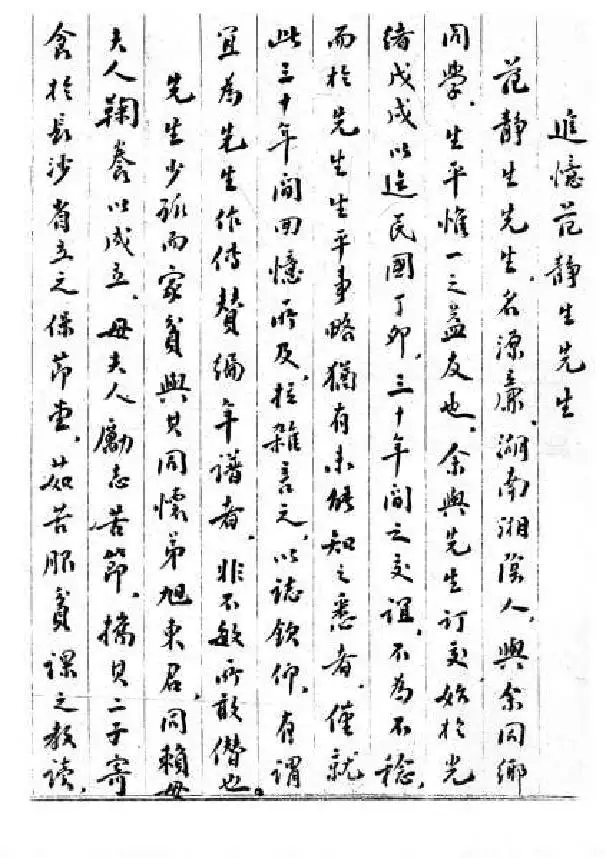 追憶范靜生先生
范靜生先生，名源廉，湖南湘陰人，與余同鄉
同學，生平惟一之益友也，余與先生訂交始於光
緒戊戌以迄民國丁卯，三十年間之交誼，不為不稔，
而於先生生平事略猶有未能知之悉者，僅就
此三十年間回憶所及，拉雜言之，以誌欽仰，有謂
宜為先生作傳贊編年譜者，非不敏所敢僭也。
先生少孤而家貧與其同懷弟旭東君，同賴母
夫人鞠養以成立，母夫人勵志苦節，攜其二子寄
食於長沙省立之保節堂，茹苦服貧課之教讀，